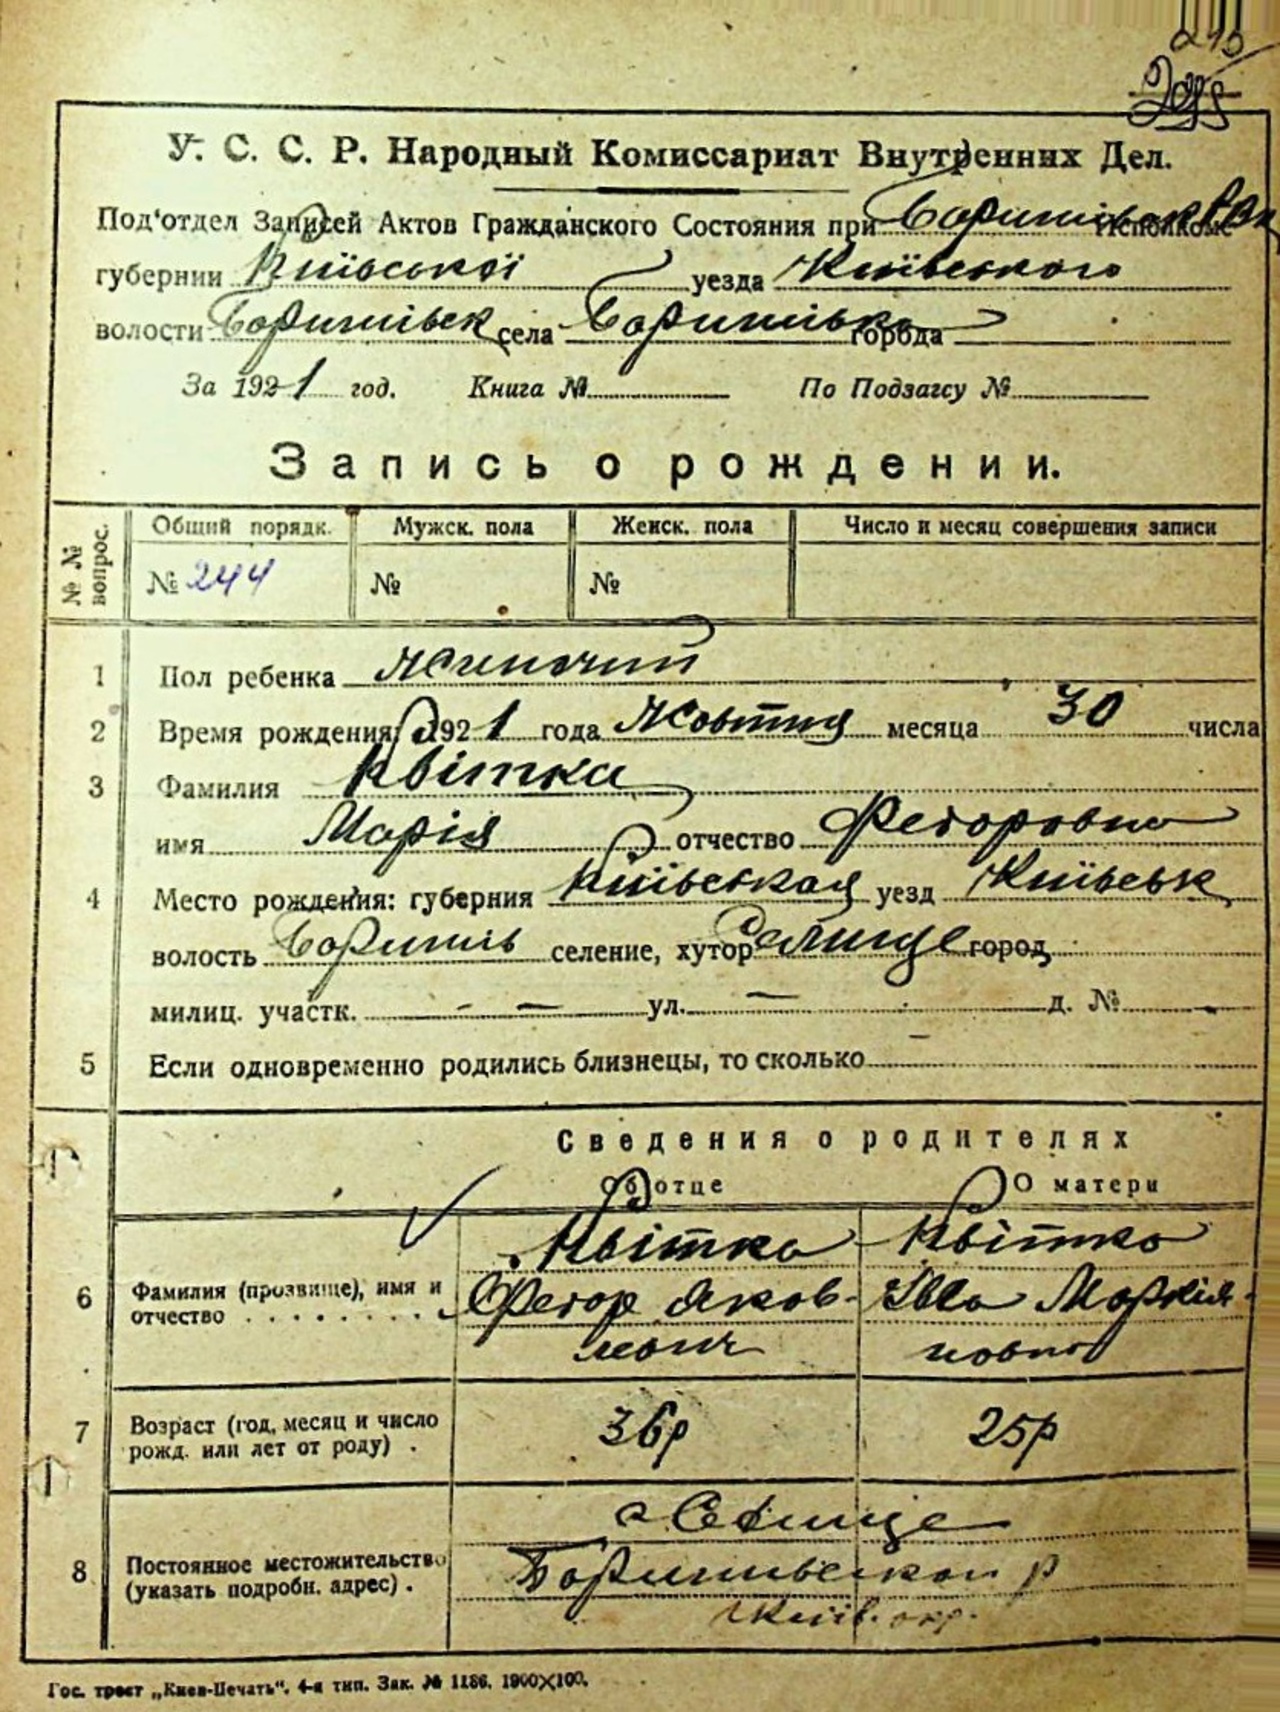 215
У. С. С. Р. Народный Комиссариат Внутренних Дел.
Под'отдел Записей Актов Гражданского Состояния при Баришівськ РВК Исполкоме
губернии Київської уезда Київського
волости Баришівськ села Баришівка города
За 1921 год. Книга № По Подзагсу №
Запись о рождении.
№№ вопрос. Общий порядк. Мужск. пола Женск. пола Число и месяц совершения записи
№ 244 № №
1 Пол ребенка жіночий
2 Время рождения: 1921 года Жовтня месяца 30 числа
3 Фамилия Квітка
имя Марія отчество Федоровна
4 Место рождения: губерния Київськая уезд Київськ
волость Баришів селение, хутор Селище город
милиц. участк. — — ул. — д. №
5 Если одновременно родились близнецы, то сколько —
Сведения о родителях
Об отце О матери
Квітка Квітка
6 Фамилия (прозвище), имя и отчество Федор Яков- Маркія-
левич новна
7 Возраст (год, месяц и число рожд. или лет от роду) . 36р 25р
с Селище
8 Постоянное местожительство (указать подробн. адрес) . Баришівської р
Київ. окр.
Гос. трест „Киев-Печать“. 4-я тип. Зак. № 1186. 1900×100.